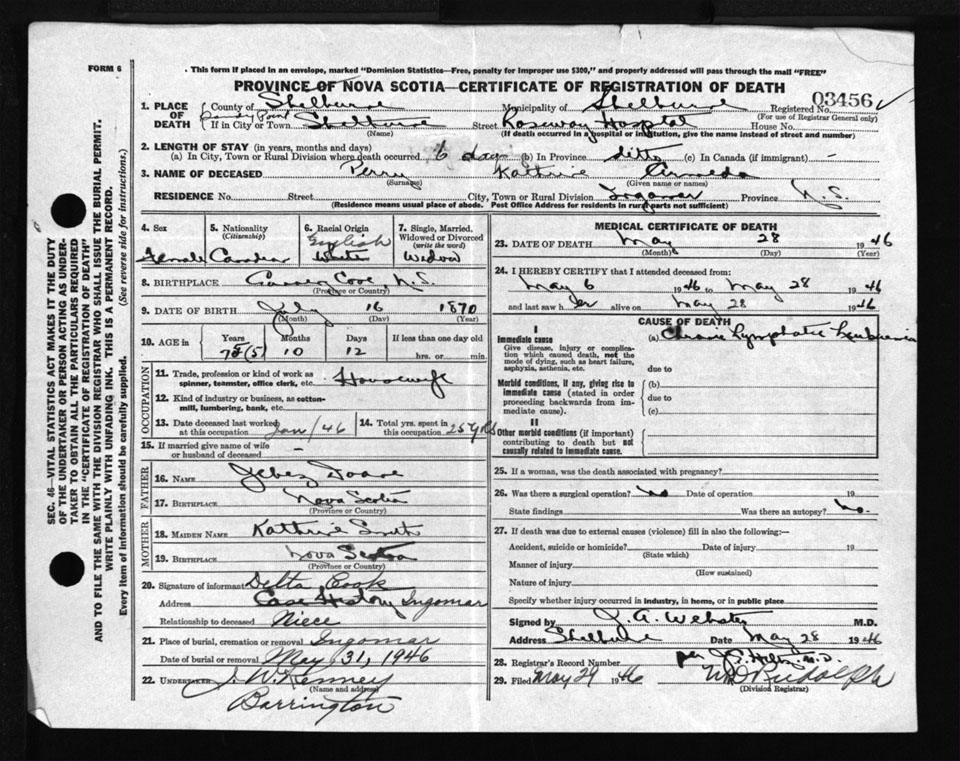 FORM 6
. This form if placed in an envelope, marked "Dominion Statistics—Free, penalty for improper use $300," and properly addressed will pass through the mail "FREE"
PROVINCE OF NOVA SCOTIA—CERTIFICATE OF REGISTRATION OF DEATH
1. PLACE OF DEATH
County of Shelburne Municipality of Shelburne Registered No. 03456
(For use of Registrar General only)
Sandy Point
If in City or Town Shelburne Street Roseway Hospital House No.
(Name) (If death occurred in a hospital or institution, give the name instead of street and number)
2. LENGTH OF STAY (in years, months and days)
(a) In City, Town or Rural Division where death occurred 6 days (b) In Province ditto (c) In Canada (if immigrant) -
3. NAME OF DECEASED Perry Kathrine
(Surname) (Given name or names)
RESIDENCE No. Street City, Town or Rural Division Ingomar Province N.S.
(Residence means usual place of abode. Post Office Address for residents in rural parts not sufficient)
4. Sex
Female
5. Nationality
(Citizenship)
Canadian
6. Racial Origin
English
White
7. Single, Married, Widowed or Divorced
(write the word)
Widow
8. BIRTHPLACE Cove N.S.
(Province or Country)
9. DATE OF BIRTH July 16 1870
(Month) (Day) (Year)
10. AGE in
Years Months Days If less than one day old
(5) 10 12 hrs. or min.
OCCUPATION
11. Trade, profession or kind of work as spinner, teamster, office clerk, etc. Housewife
12. Kind of industry or business, as cotton-mill, lumbering, bank, etc.
13. Date deceased last worked at this occupation Jan/46
14. Total yrs. spent in this occupation 25 yrs
15. If married give name of wife or husband of deceased -
FATHER
16. Name Jebez Doane
17. BIRTHPLACE Nova Scotia
(Province or Country)
MOTHER
18. MAIDEN NAME Kathrine Smith
19. BIRTHPLACE Nova Scotia
(Province or Country)
20. Signature of informant Delta Cook
Address Case History Ingomar
Relationship to deceased Niece
21. Place of burial, cremation or removal Ingomar
Date of burial or removal May 31, 1946
22. UNDERTAKER J. W. Kenney
(Name and address)
Barrington
MEDICAL CERTIFICATE OF DEATH
23. DATE OF DEATH May 28 1946
(Month) (Day) (Year)
24. I HEREBY CERTIFY that I attended deceased from:
May 6 1946 to May 28 1946
and last saw her alive on May 28 1946
CAUSE OF DEATH
I
Immediate cause
Give disease, injury or complication which caused death, not the mode of dying, such as heart failure, asphyxia, asthenia, etc.
(a) Chronic Lymphatic Leukaemia
due to
Morbid conditions, if any, giving rise to immediate cause (stated in order proceeding backwards from immediate cause).
(b)
due to
(c)
II
Other morbid conditions (if important) contributing to death but not causally related to immediate cause.
25. If a woman, was the death associated with pregnancy?
26. Was there a surgical operation? no Date of operation 19
State findings Was there an autopsy? no.
27. If death was due to external causes (violence) fill in also the following:—
Accident, suicide or homicide? Date of injury 19
(State which)
Manner of injury
(How sustained)
Nature of injury
Specify whether injury occurred in industry, in home, or in public place
Signed by J. A. Webster M.D.
Address Shelburne Date May 28 1946
28. Registrar's Record Number per M.D.
29. Filed May 29 1946
(Division Registrar)
SEC. 46—VITAL STATISTICS ACT MAKES IT THE DUTY
OF THE UNDERTAKER OR PERSON ACTING AS UNDER-
TAKER TO OBTAIN ALL THE PARTICULARS REQUIRED
IN THE "CERTIFICATE OF REGISTRATION OF DEATH"
AND TO FILE THE SAME WITH THE DIVISION REGISTRAR WHO SHALL ISSUE THE BURIAL PERMIT.
WRITE PLAINLY WITH UNFADING INK. THIS IS A PERMANENT RECORD.
Every item of information should be carefully supplied. (See reverse side for instructions.)